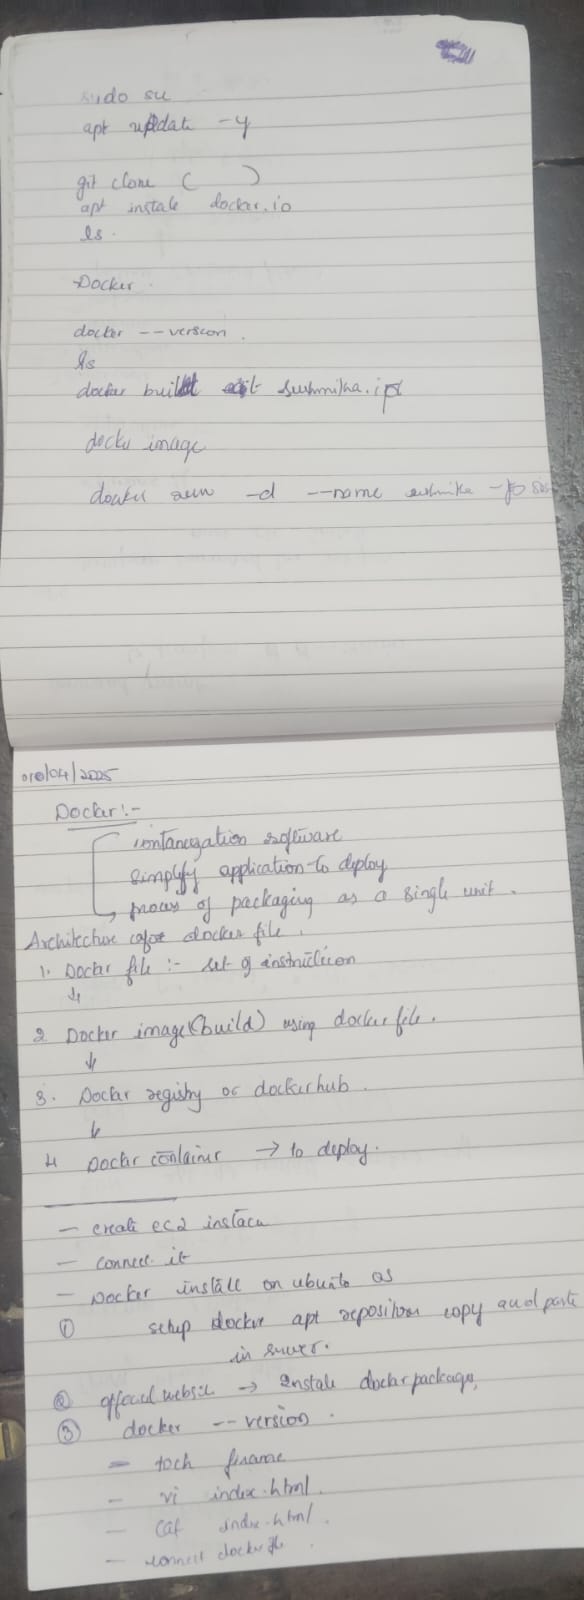 sudo su
apt update -y
git clone ( )
apt instale docker.io
ls.
Docker.
docker --version.
ls
docker build
docker image
docker run -d --name
/04/2025
Docker:-
software
simplify application to deploy
process of packaging as a single unit.
Architecture docker file.
1. Docker file :- set of instruction
↓
2. Docker image (build) using docker file.
↓
3. Docker registry or dockerhub.
↓
4 Docker container → to deploy.
- create ec2
- connect it
- Docker install on ubunto os
① setup docker apt copy and paste
in server.
② → Instale docker packages,
③ docker --version.
-
- vi index.html.
- cat index.html.
- connect